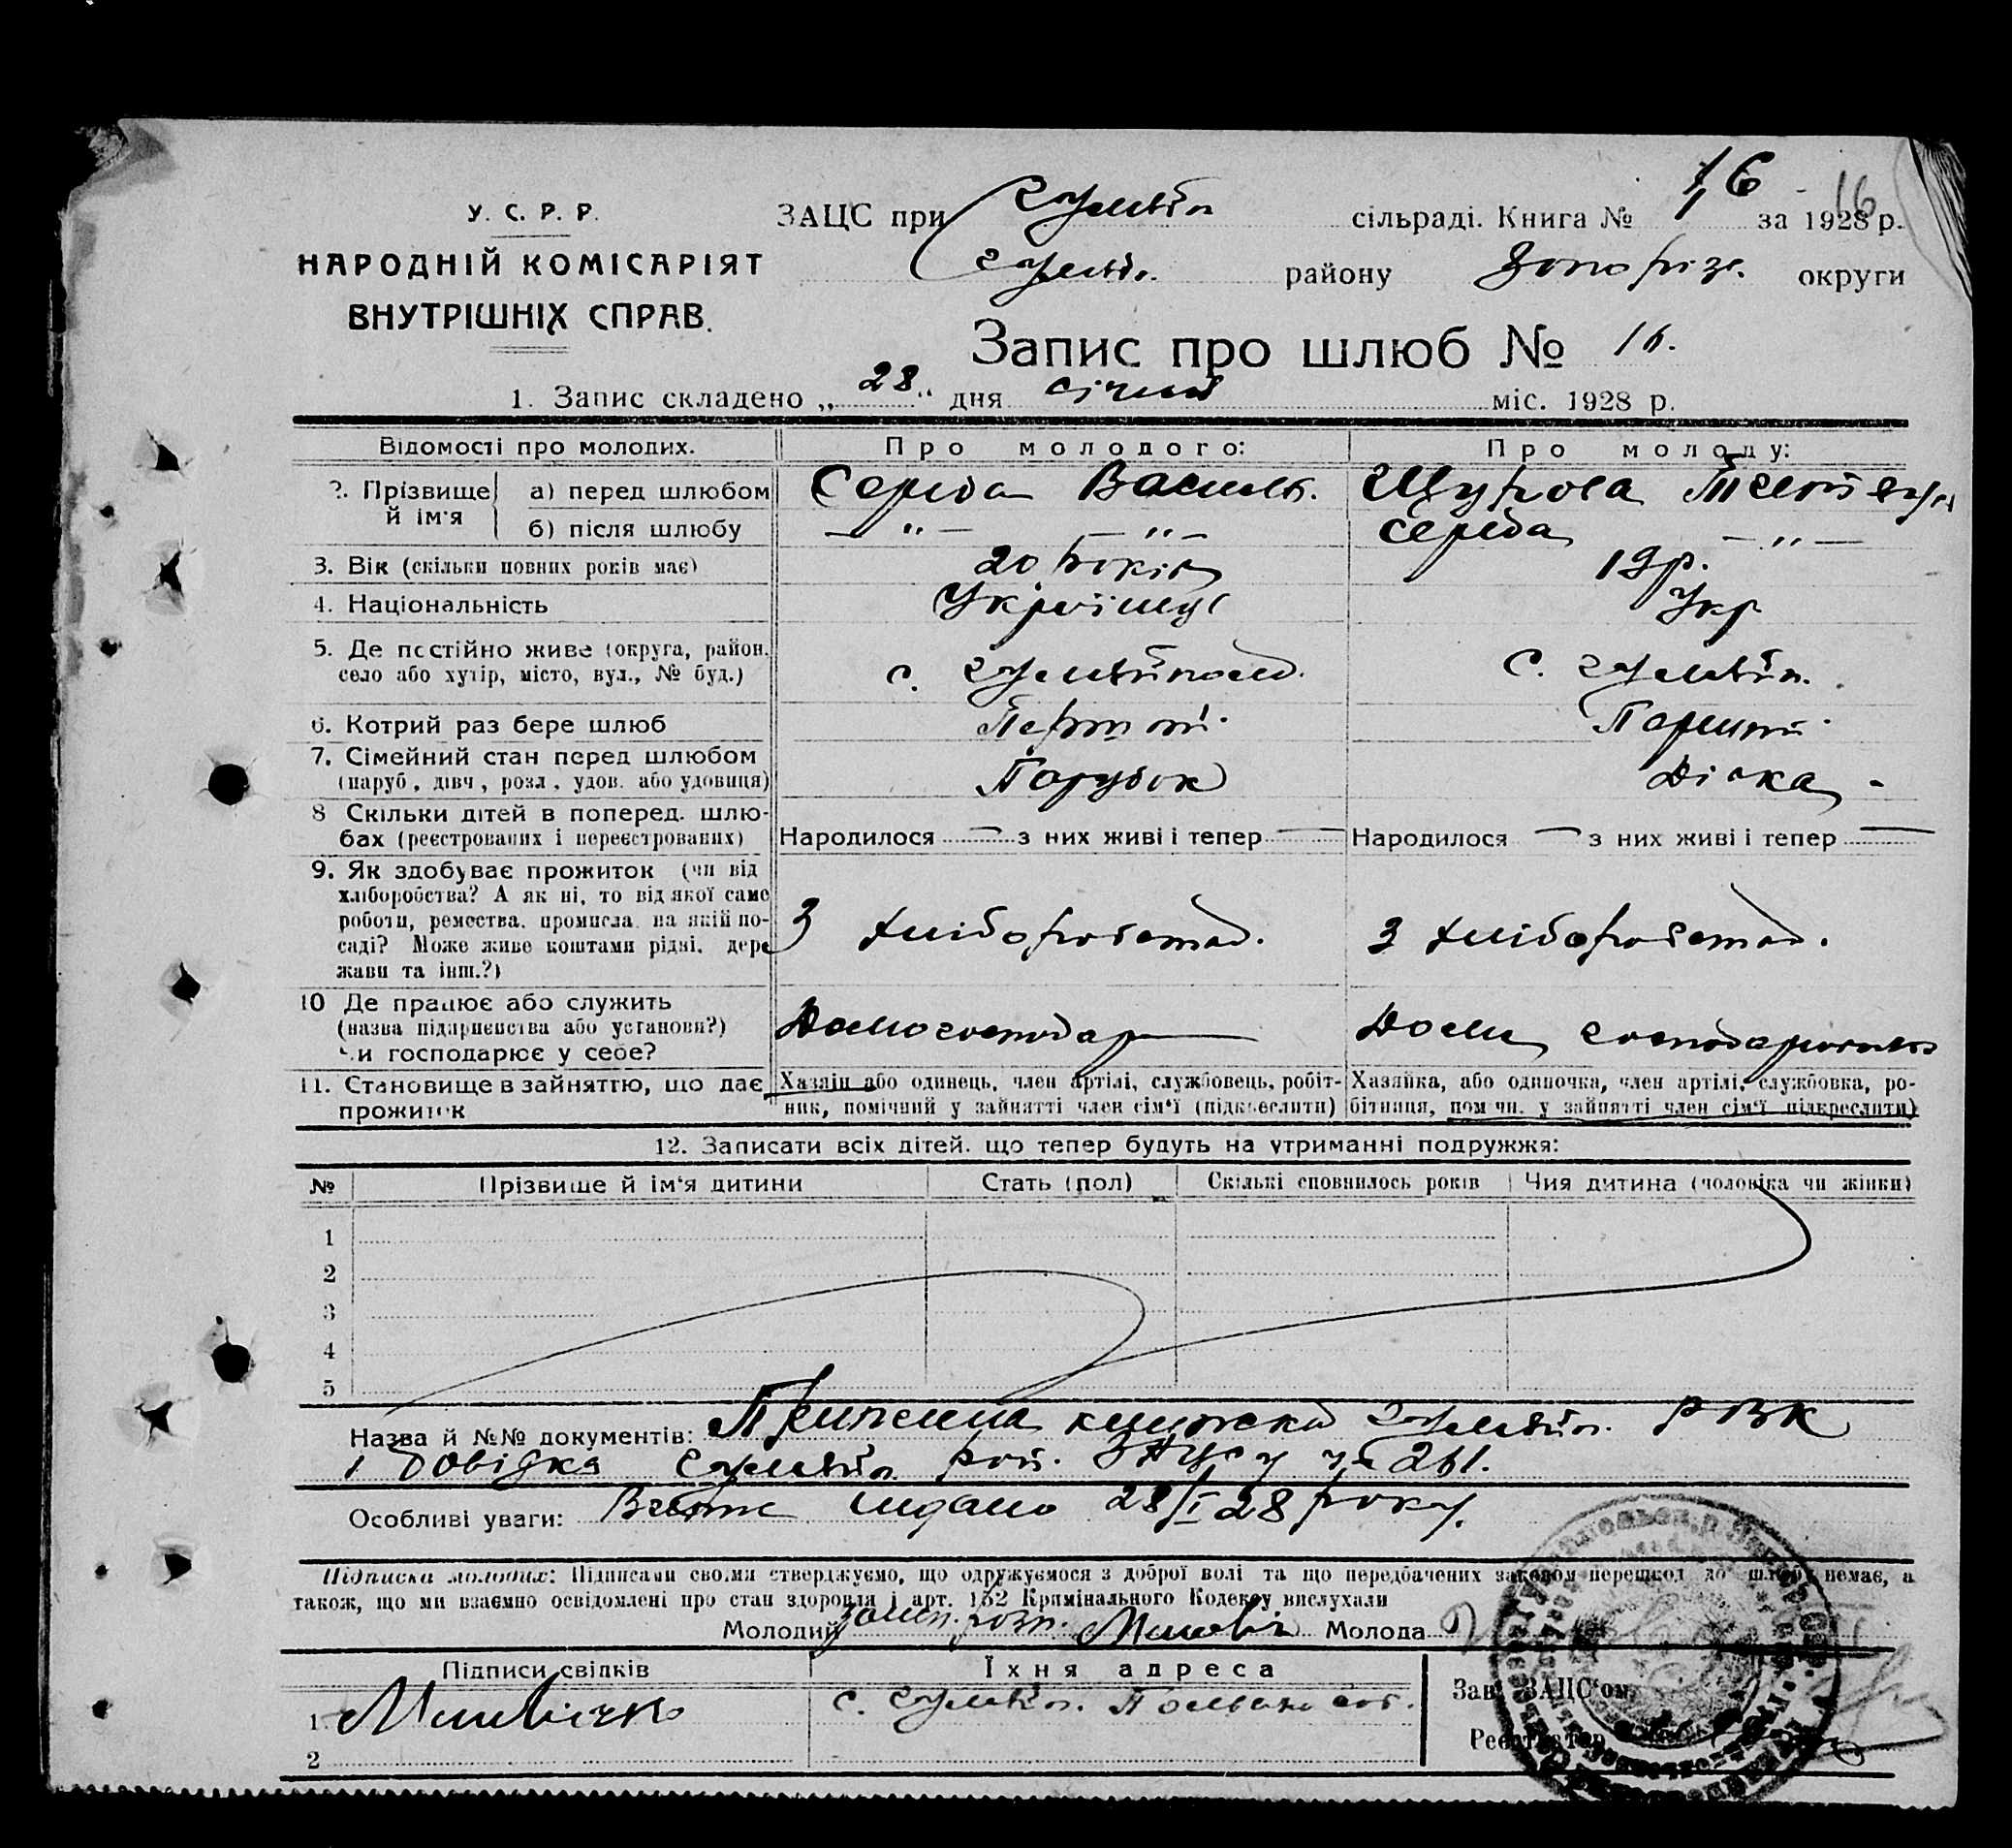 16 - 16
У. С. Р. Р.
НАРОДНІЙ КОМІСАРІЯТ
ВНУТРІШНІХ СПРАВ.
ЗАЦС при Гуляйпіл сільраді. Книга № 1 за 1928 р.
Гуляйп. району Запоріз. округи
Запис про шлюб № 16.
1. Запис складено „28" дня січня міс. 1928 р.
Відомості про молодих. Про молодого: Про молоду:
2. Прізвище й ім'я а) перед шлюбом Середа Василь. Щурова Тетяна
б) після шлюбу — " — — " — Середа — " —
3. Вік (скільки повних років має) 20 років 19 р.
4. Національність Українець Укр
5. Де постійно живе (округа, район,
село або хутір, місто, вул., № буд.) с. Гуляйполе. С. Гуляйпіл.
6. Котрий раз бере шлюб Перший. Перший.
7. Сімейний стан перед шлюбом
(паруб., дівч., розл., удов. або удовиця) Парубок Дівка -
8 Скільки дітей в поперед. шлю-
бах (реєстрованих і нереєстрованих) Народилося — з них живі і тепер — Народилося — з них живі і тепер —
9. Як здобуває прожиток (чи від
хліборобства? А як ні, то від якої саме
роботи, ремества, промисла, на якій по-
саді? Може живе коштами рідні, дер-
жави та інш.?) З хліборобства. З хліборобства.
10 Де працює або служить
(назва підприємства або установи?)
Чи господарює у себе? Домогосподар Дома господарює
11. Становище в зайняттю, що дає
прожиток
Хазяїн або одинець, член артілі, службовець, робіт-
ник, помічний у зайнятті член сім'ї (підкреслити)
Хазяйка, або одиночка, член артілі, службовка, ро-
бітниця, помічн. у зайнятті член сім'ї підкреслити)
12. Записати всіх дітей, що тепер будуть на утриманні подружжя:
№ Прізвище й ім'я дитини Стать (пол) Скількі сповнилось років Чия дитина (чоловіка чи жінки)
1
2
3
4
5
Назва й №№ документів: книжка Гуляйпіл. РВК
і довідка Гуляйпіл рай. ЗАЦСу № 261.
Особливі уваги: видано 28/I 28 року.
Підписка молодих: Підписами своїми стверджуємо, що одружуємося з доброї волі та що передбачених законом перешкод до шлюбу немає, а
також, що ми взаємно освідомлені про стан здоровля і арт. 152 Кримінального Кодексу вислухали
Молодий Молода
Підписи свідків Їхня адреса
1. с. Гуляйпіл.
2
Зав. ЗАЦС'ом
Реєстратор